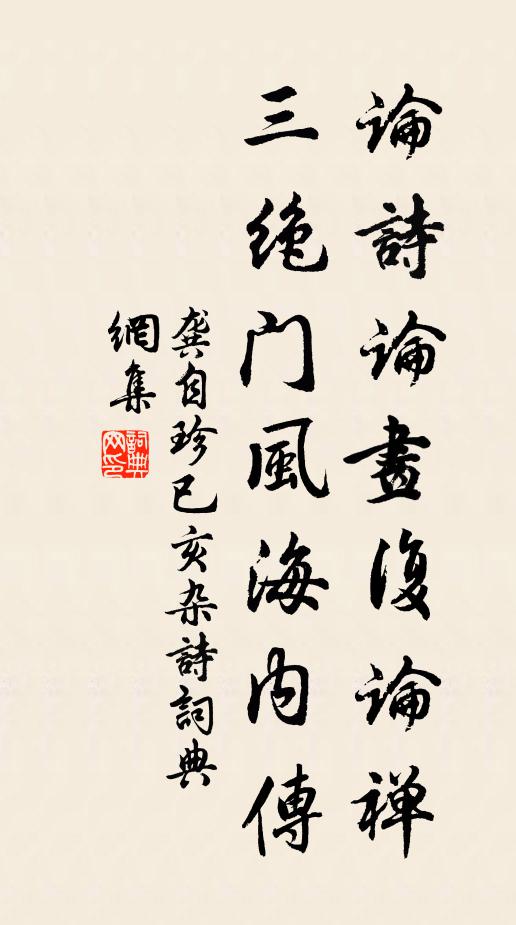 論詩論畫復論禅
三绝门風海内傳
龚自珍已亥杂詩詞典
網集
詞典
网印